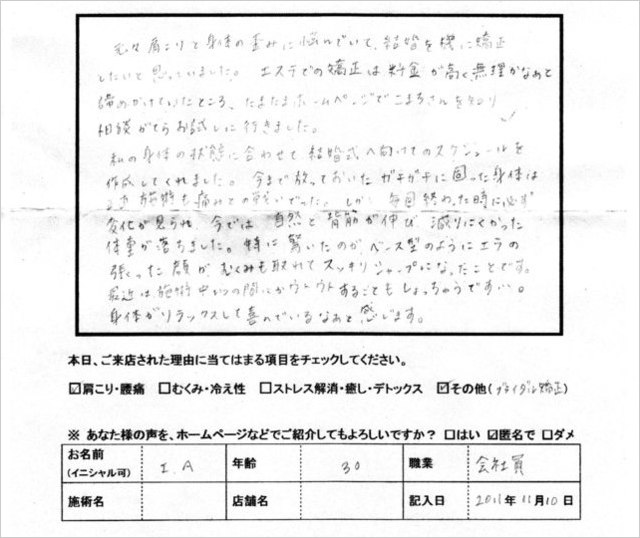 元々肩こりと身体の歪みに悩んでいて、結婚を機に矯正
したいと思っていました。エステでの矯正は料金が高く無理かなぁと
諦めかけていたところ、たまたまホームページでこまちさんを知り
相談がてらお試しに行きました。
私の身体の状態に合わせて結婚式へ向けてのスケジュールを
作成してくれました。今まで放っておいたガチガチに固った身体は
施術も痛みとの戦いでした。しかし毎回終わった時に必ず
変化が見られ、今では自然と背筋が伸び減りにくかった
体重が落ちました。特に驚いたのがベース型のようにエラの
張った顔がむくみも取れてスッキリシャープになったことです。
最近は施術中いつの間にかウトウトすることもしょっちゅうです…。
身体がリラックスして喜んでいるなぁと感じます。
本日、ご来店された理由に当てはまる項目をチェックしてください。
☑肩こり・腰痛 □むくみ・冷え性 □ストレス解消・癒し・デトックス ☑その他(ブライダル矯正)
※ あなた様の声を、ホームページなどでご紹介してもよろしいですか？ □はい ☑匿名で □ダメ
お名前(イニシャル可) I.A 年齢 30 職業 会社員
施術名 店舗名 記入日 2011年11月10日